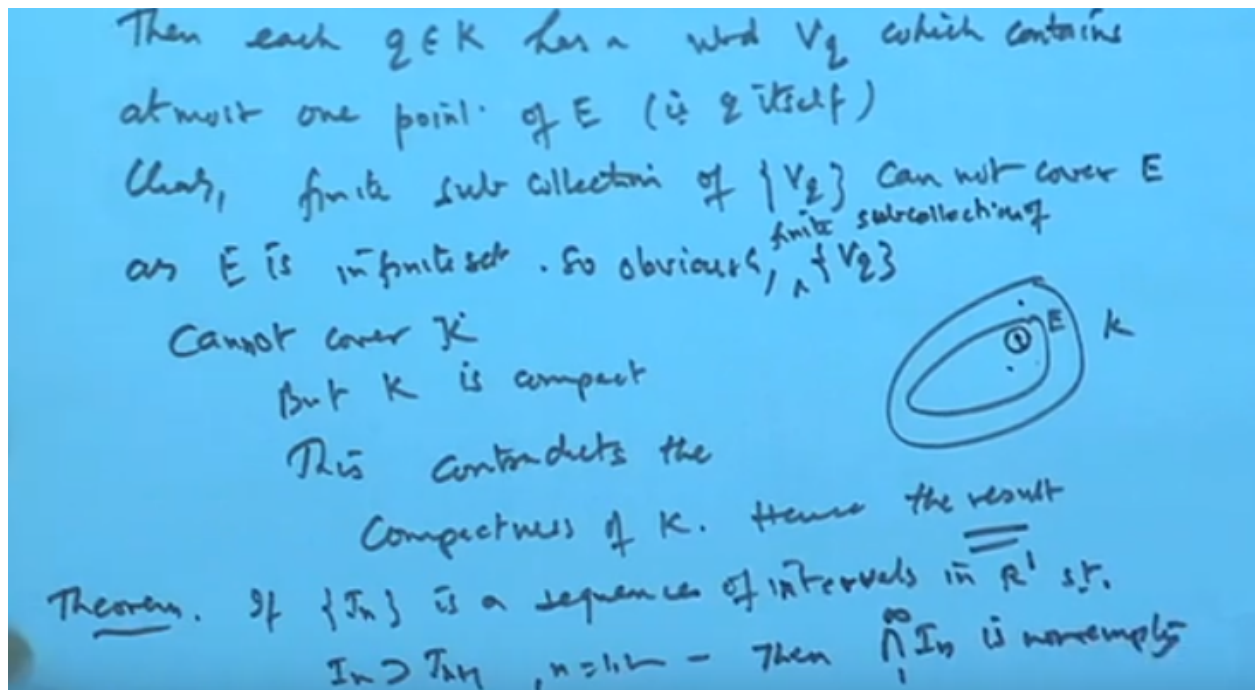 Then each q ∈ K has a nbd V_q which contains
atmost one point of E (ie q itself)
Clearly, finite sub collection of {V_q} Can not cover E
finite subcollection of
as E is infinite set. So obviously, ^ {V_q}
Cannot cover K
E K
But K is compact
This contradicts the
Compactness of K. Hence the result
Theorem. If {I_n} is a sequences of intervals in R' st.
I_n ⊃ I_n+1, n=1,2 — Then ∞∩1 I_n is nonempty